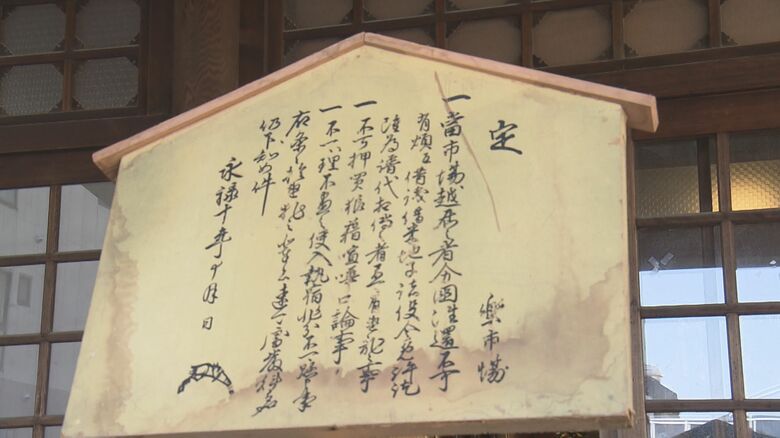 定
樂市場
一當市場越居之者分國往還不可
有煩并借銭借米地子諸役令免許訖
雖為譜代相傳之者不可有違乱之事
一不可押買狼藉喧嘩口論事
一不可理不盡之使入執宿非分不可懸申事
右条々於違犯之輩者速可處嚴科者也
仍下知如件
永禄十年十月日